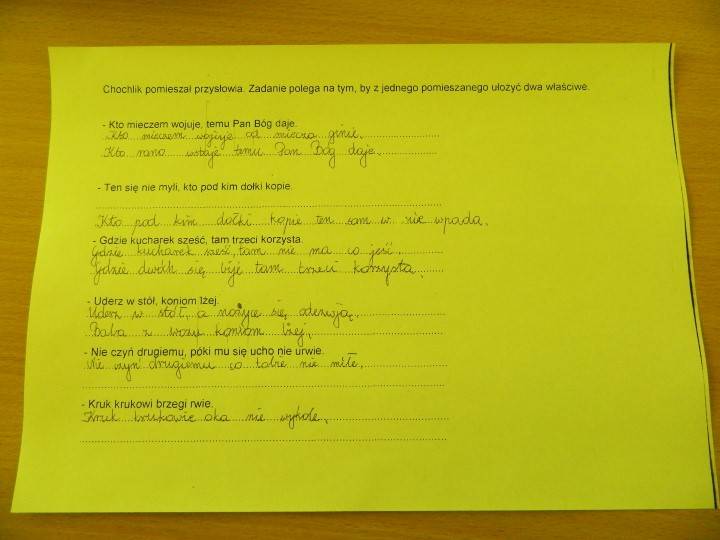 Chochlik pomieszał przysłowia. Zadanie polega na tym, by z jednego pomieszanego ułożyć dwa właściwe.
- Kto mieczem wojuje, temu Pan Bóg daje.
Kto mieczem wojuje od miecza ginie.
Kto rano wstaje temu Pan Bóg daje.
- Ten się nie myli, kto pod kim dołki kopie.
Kto pod kim dołki kopie ten sam w nie wpada.
- Gdzie kucharek sześć, tam trzeci korzysta.
Gdzie kucharek sześć, tam nie ma co jeść.
Gdzie dwóch się bije tam trzeci korzysta.
- Uderz w stół, koniom lżej.
Uderz w stół, a nożyce się odezwją.
Baba z wozu koniom lżej.
- Nie czyń drugiemu, póki mu się ucho nie urwie.
Nie czyń drugiemu co tobie nie miłe.
- Kruk krukowi brzegi rwie.
Kruk krukowie oka nie wykole.